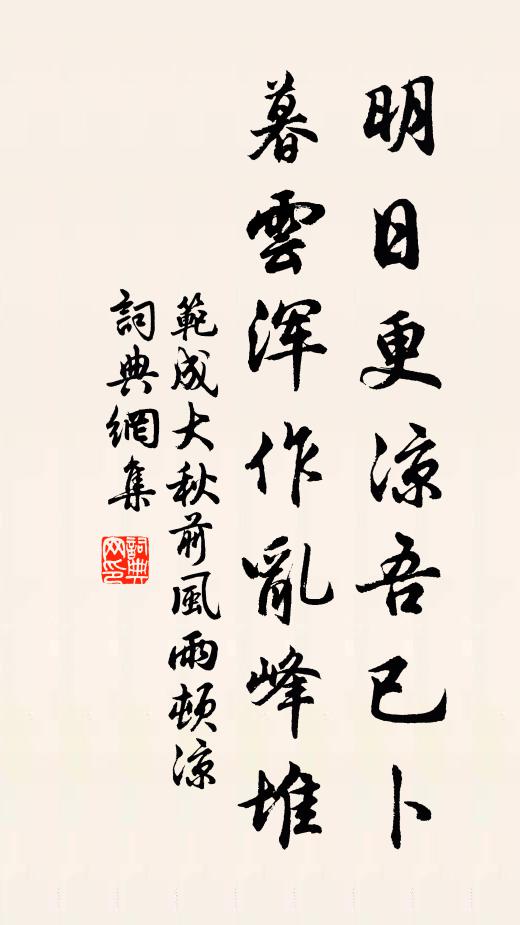 明日更凉吾已卜
暮雲浑作亂峰堆
範成大秋前風雨頓凉
詞典網集
詞典网印